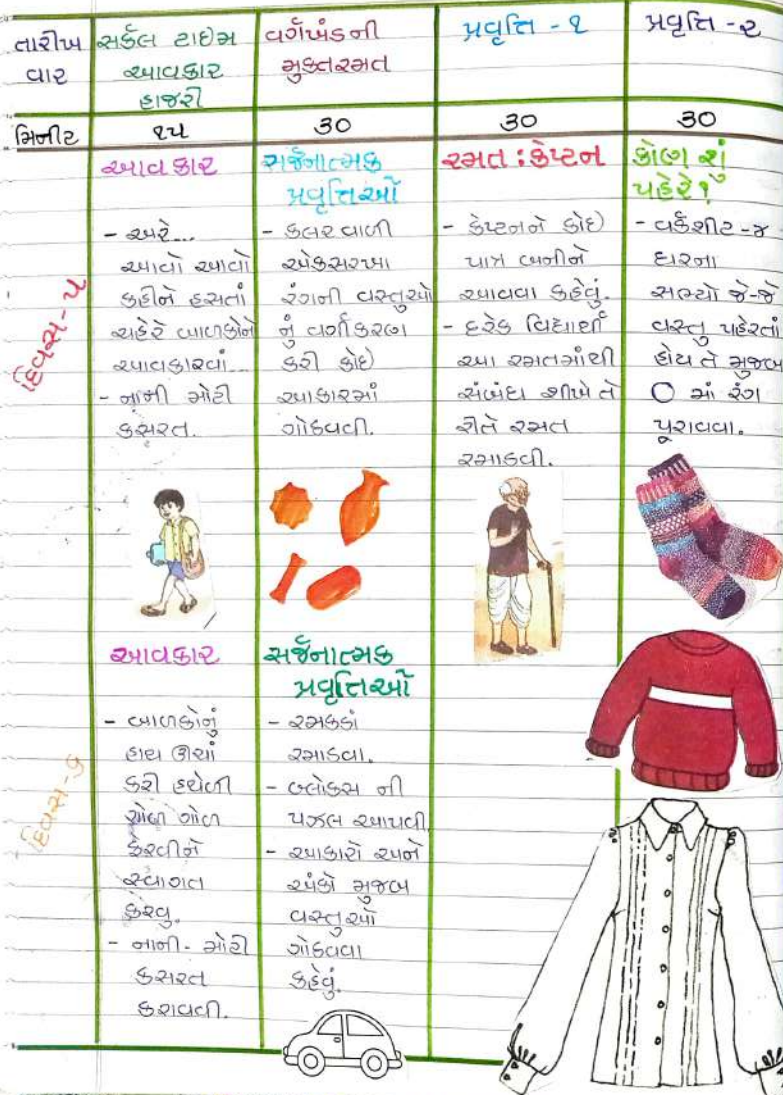 તારીખ
વાર
સર્કલ ટાઇમ
આવકાર
હાજરી
વર્ગખંડની
મુક્તરમત
પ્રવૃત્તિ - ૧
પ્રવૃત્તિ - ૨
મિનીટ
૧૫
30
30
30
દિવસ-૫
આવકાર
- અરે...
આવો આવો
કહીને હસતાં
ચહેરે બાળકોને
આવકારવાં...
- નાની મોટી
કસરત.
સર્જનાત્મક
પ્રવૃત્તિઓ
- કલર વાળી
એકસરખા
રંગની વસ્તુઓ
નું વર્ગીકરણ
કરી કોઇ
આકારમાં
ગોઠવવી.
રમત : કેપ્ટન
- કેપ્ટનને કોઇ
પાત્ર બનીને
આવવા કહેવું.
- દરેક વિદ્યાર્થી
આ રમતમાંથી
સંબંધ શીખે તે
રીતે રમત
રમાડવી.
કોણ શું
પહેરે?
- વર્કશીટ -૪
ઘરના
સભ્યો જે-જે
વસ્તુ પહેરતાં
હોય તે મુજબ
માં રંગ
પૂરાવવા.
દિવસ-૬
આવકાર
- બાળકોનું
હાથ ઊંચાં
કરી હથેળી
ગોળ ગોળ
ફેરવીને
સ્વાગત
કરવુ.
- નાની- મોટી
કસરત
કરાવવી.
સર્જનાત્મક
પ્રવૃત્તિઓ
- રમકડાં
રમાડવા.
- બ્લોકસ ની
પઝલ આપવી
- આકારો અને
અંકો મુજબ
વસ્તુઓ
ગોઠવવા
કહેવું.